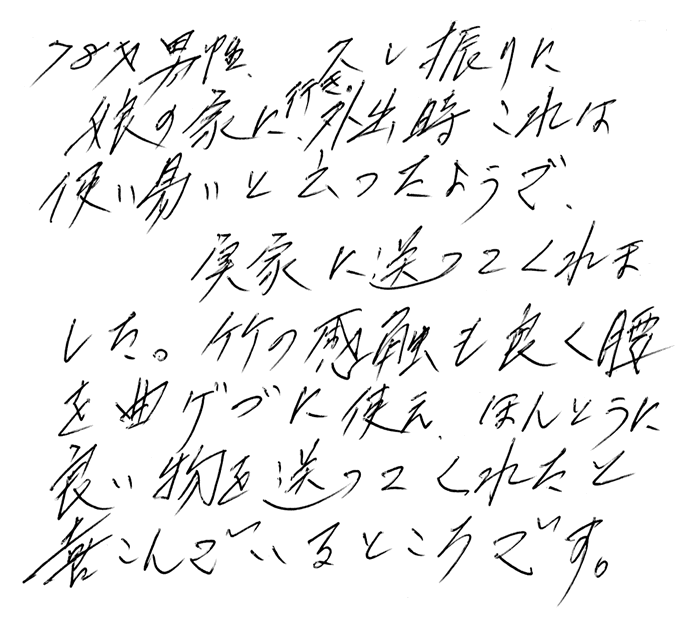 78才男性、久し振りに
娘の家に行き。外出時これは
使い易いと云ったようで、
実家に送ってくれま
した。竹の感触も良く腰
を曲げづに使え、ほんとうに
良い物を送ってくれたと
喜こんでいるところです。